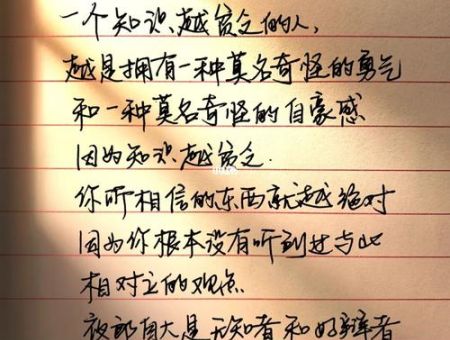 一个知识越贫乏的人,
越是拥有一种莫名奇怪的勇气
和一种莫名奇怪的自豪感
因为知识越贫乏.
你听相信的东西就越绝对
因为你根本没有听到过与此
相对立的观点.
夜郎自大是无知者和好辩者